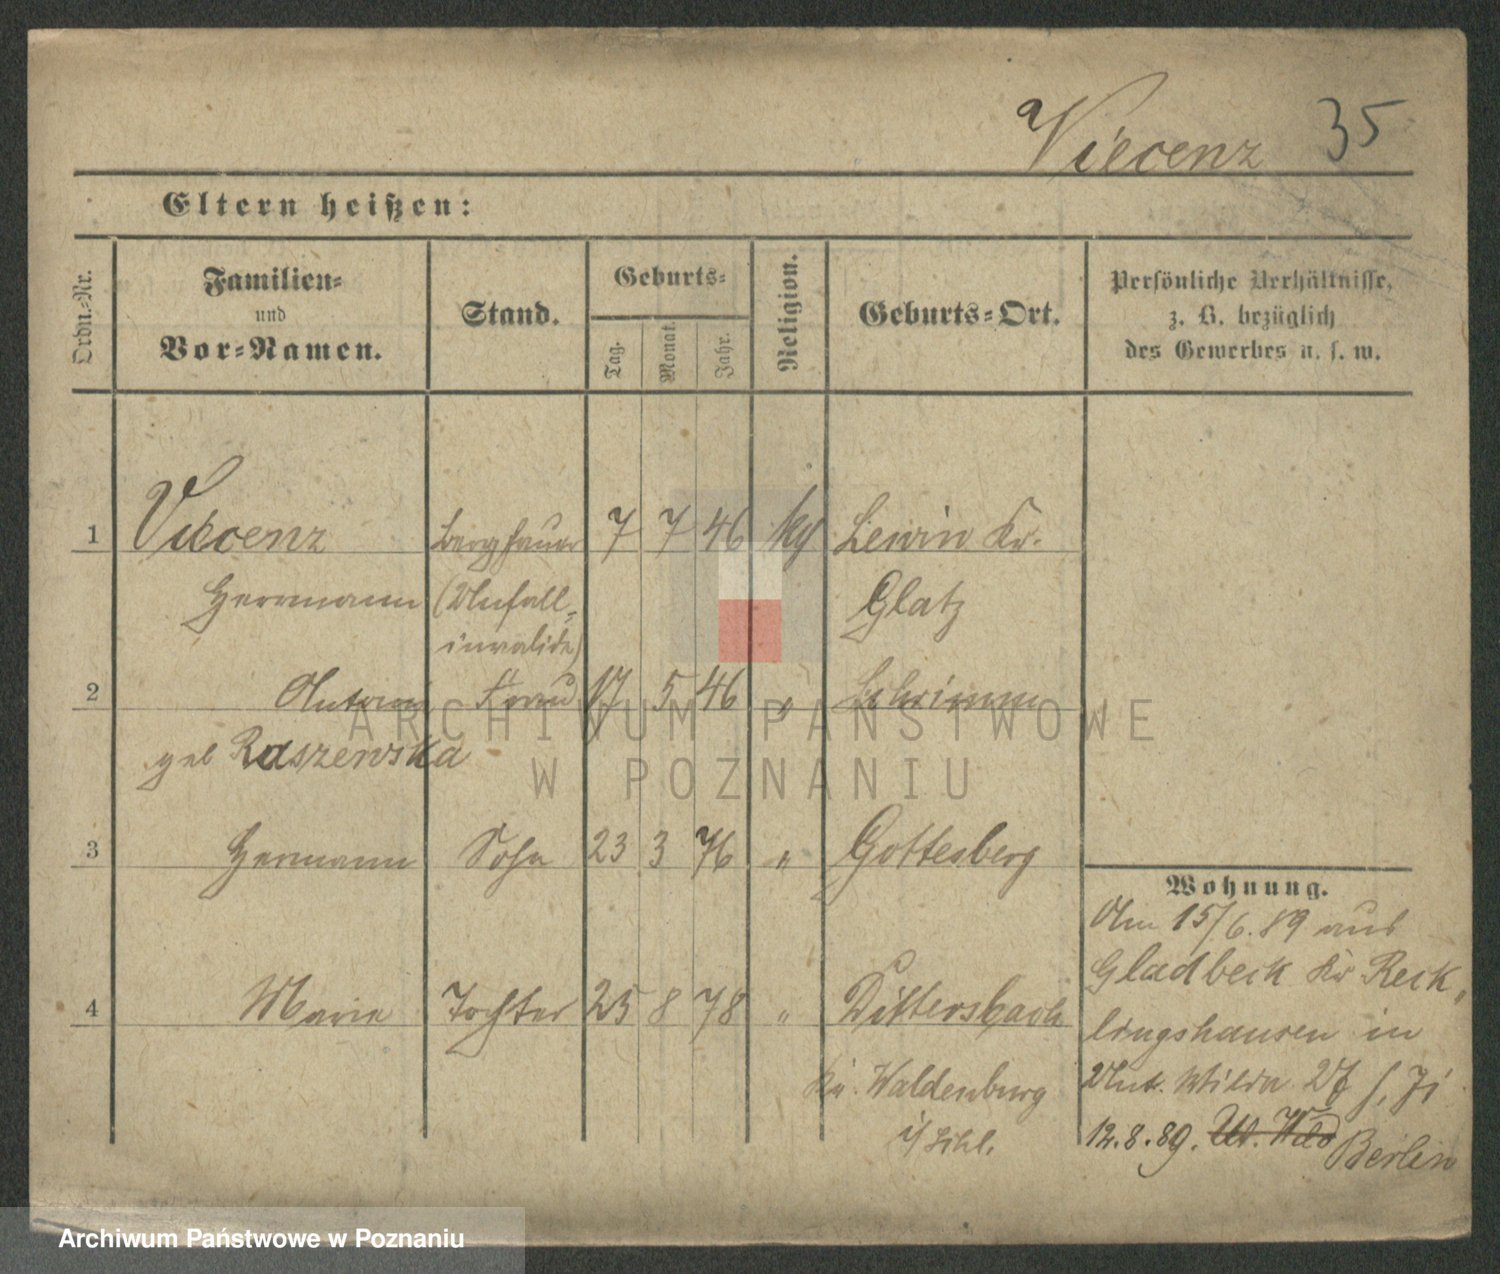 Viecenz 35
Eltern heißen:
Ordn.-Nr.
Familien-
und
Vor-Namen.
Stand.
Geburts-
Tag.
Monat.
Jahr.
Religion.
Geburts-Ort.
Persönliche Verhältnisse,
z. B. bezüglich
des Gewerbes u. s. w.
1 Viecenz Berghauer 7 7 46 kg Lewin Kr.
Herrmann (Unfall- Glatz
invalide)
2 Antonie Frau 17 5 46 " Schrimm
geb Raszewska
3 Hermann Sohn 23 3 76 " Gottesberg
4 Marie Tochter 25 8 78 " Dittersbach
Kr. Waldenburg
i/ Schl.
Wohnung.
Am 15/6.89 aus
Gladbeck Kr Reck-
lingshausen in
Unt. Wilda 27
12.8.89. Ut. Wild Berlin
ARCHIWUM PAŃSTWOWE
W POZNANIU
Archiwum Państwowe w Poznaniu